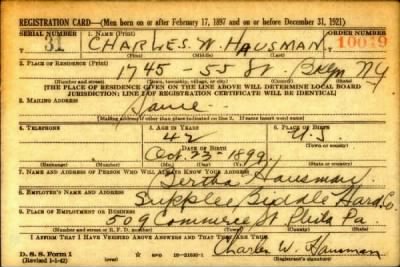 REGISTRATION CARD—(Men born on or after February 17, 1897 and on or before December 31, 1921)
SERIAL NUMBER 1. NAME (Print) ORDER NUMBER
31 CHARLES. W. HAUSMAN 10019
2. PLACE OF RESIDENCE (Print)
1745 - 55 St Bklyn NY
(Number and street) (Town, township, village, or city) (County) (State)
[THE PLACE OF RESIDENCE GIVEN ON THE LINE ABOVE WILL DETERMINE LOCAL BOARD
JURISDICTION; LINE 2 OF REGISTRATION CERTIFICATE WILL BE IDENTICAL]
3. MAILING ADDRESS
Same
[Mailing address if other than place indicated on line 2. If same insert word same]
4. TELEPHONE 5. AGE IN YEARS 6. PLACE OF BIRTH
42
DATE OF BIRTH
Oct. 23 - 1899
(Exchange) (Number) (Mo.) (Day) (Yr.) (State or country)
7. NAME AND ADDRESS OF PERSON WHO WILL ALWAYS KNOW YOUR ADDRESS
Bertha Hausman
8. EMPLOYER'S NAME AND ADDRESS
Supplee Biddle Hard. Co.
9. PLACE OF EMPLOYMENT OR BUSINESS
509 Commerce St Phila Pa.
(Number and street or R. F. D. number) (Town) (County) (State)
I AFFIRM THAT I HAVE VERIFIED ABOVE ANSWERS AND THAT THEY ARE TRUE.
D. S. S. Form 1
(Revised 1-1-42) GPO 16—21630-1
Charles W. Hausman